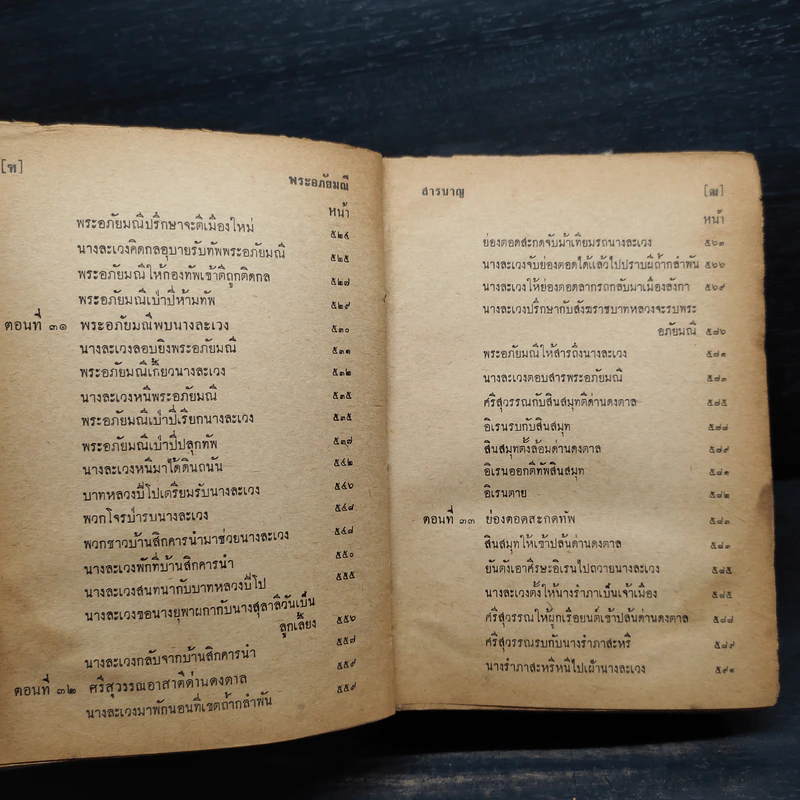 [ฑ]
พระอภัยมณี
หน้า
พระอภัยมณีปรึกษาจะตีเมืองใหม่ ๕๒๔
นางละเวงคิดกลอุบายรับทัพพระอภัยมณี ๕๒๕
พระอภัยมณีให้กองทัพเข้าตีถูกติดกล ๕๒๗
พระอภัยมณีเป่าปี่ห้ามทัพ ๕๒๙
ตอนที่ ๓๑ พระอภัยมณีพบนางละเวง ๕๓๐
นางละเวงลอบยิงพระอภัยมณี ๕๓๑
พระอภัยมณีเกี้ยวนางละเวง ๕๓๒
นางละเวงหนีพระอภัยมณี ๕๓๕
พระอภัยมณีเป่าปี่เรียกนางละเวง ๕๓๕
พระอภัยมณีเป่าปี่ปลุกทัพ ๕๓๗
นางละเวงหนีมาได้ดินถนัน ๕๔๒
บาทหลวงปีโปเตรียมรับนางละเวง ๕๔๖
พวกโจรป่ารบนางละเวง ๕๔๘
พวกชาวบ้านสิกคารนำมาช่วยนางละเวง ๕๔๘
นางละเวงพักที่บ้านสิกคารนำ ๕๕๐
นางละเวงสนทนากับบาทหลวงปีโป ๕๕๕
นางละเวงขอนางยุพาผกากับนางสุลาลีวันเป็น
ลูกเลี้ยง ๕๕๖
นางละเวงกลับจากบ้านสิกคารนำ ๕๕๗
ตอนที่ ๓๒ ศรีสุวรรณอาสาตีด่านดงตาล ๕๕๙
นางละเวงมาพักนอนที่เขตถ้ำกลำพัน ๕๕๙
สารบาญ
[ฒ]
หน้า
ย่องตอดสะกดจับม้าเทียมรถนางละเวง ๕๖๓
นางละเวงจับย่องตอดได้แล้วไปปราบผีถ้ำกลำพัน ๕๖๖
นางละเวงให้ย่องตอดลากรถกลับมาเมืองลังกา ๕๖๙
นางละเวงปรึกษากับสังฆราชบาทหลวงจะรบพระ
อภัยมณี ๕๗๖
พระอภัยมณีให้สารถึงนางละเวง ๕๗๑
นางละเวงตอบสารพระอภัยมณี ๕๗๓
ศรีสุวรรณกับสินสมุทตีด่านดงตาล ๕๗๕
อิเรนรบกับสินสมุท ๕๗๘
สินสมุทตั้งล้อมด่านดงตาล ๕๗๙
อิเรนออกตีทัพสินสมุท ๕๘๑
อิเรนตาย ๕๘๒
ตอนที่ ๓๓ ย่องตอดสะกดทัพ ๕๘๓
สินสมุทให้เข้าปล้นด่านดงตาล ๕๘๓
ยันตังเอาศีรษะอิเรนไปถวายนางละเวง ๕๘๕
นางละเวงตั้งให้นางรำภาเป็นเจ้าเมือง ๕๘๕
ศรีสุวรรณให้ผูกเรือยนต์เข้าปล้นด่านดงตาล ๕๘๘
ศรีสุวรรณรบกับนางรำภาสะหรี ๕๘๙
นางรำภาสะหรีหนีไปเฝ้านางละเวง ๕๙๑